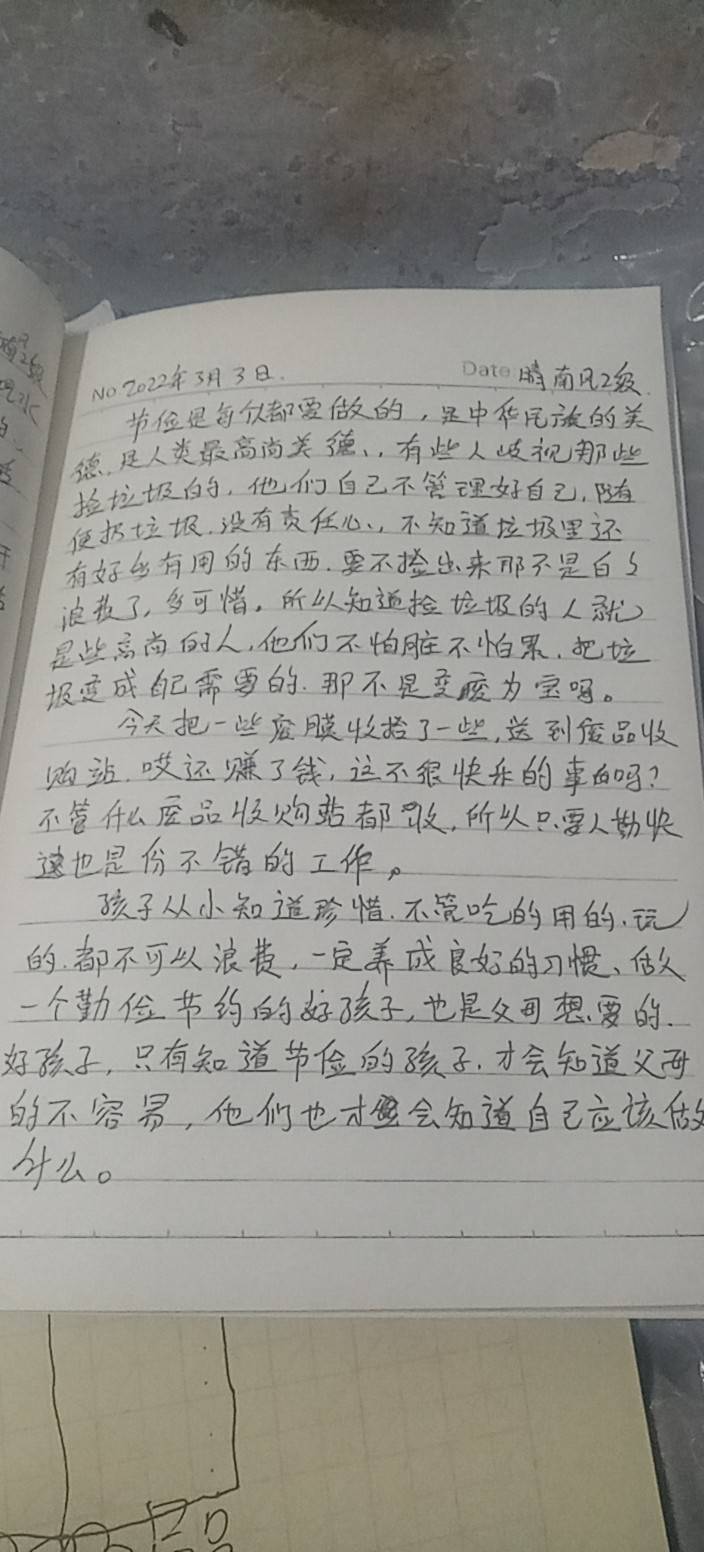 No 2022年3月3日. Date 晴南风2级
节俭是每个人都要做的，是中华民族的美
德、是人类最高尚美德、，有些人歧视那些
捡垃圾的，他们自己不管理好自己，随
便扔垃圾，没有责任心、，不知道垃圾里还
有好多有用的东西．要不捡出来那不是白白
浪费了，多可惜，所以知道捡垃圾的人就
是些高尚的人，他们不怕脏不怕累，把垃
圾变成自己需要的．那不是变废为宝吗。
今天把一些废膜收拾了一些，送到废品收
购站．哎还赚了钱，这不很快乐的事的吗？
不管什么废品收购站都收，所以只要人勤快
这也是份不错的工作。
孩子从小知道珍惜．不管吃的用的．玩
的．都不可以浪费，一定养成良好的习惯、做
一个勤俭节约的好孩子，也是父母想要的．
好孩子，只有知道节俭的孩子．才会知道父母
的不容易，他们也才会知道自己应该做
什么。